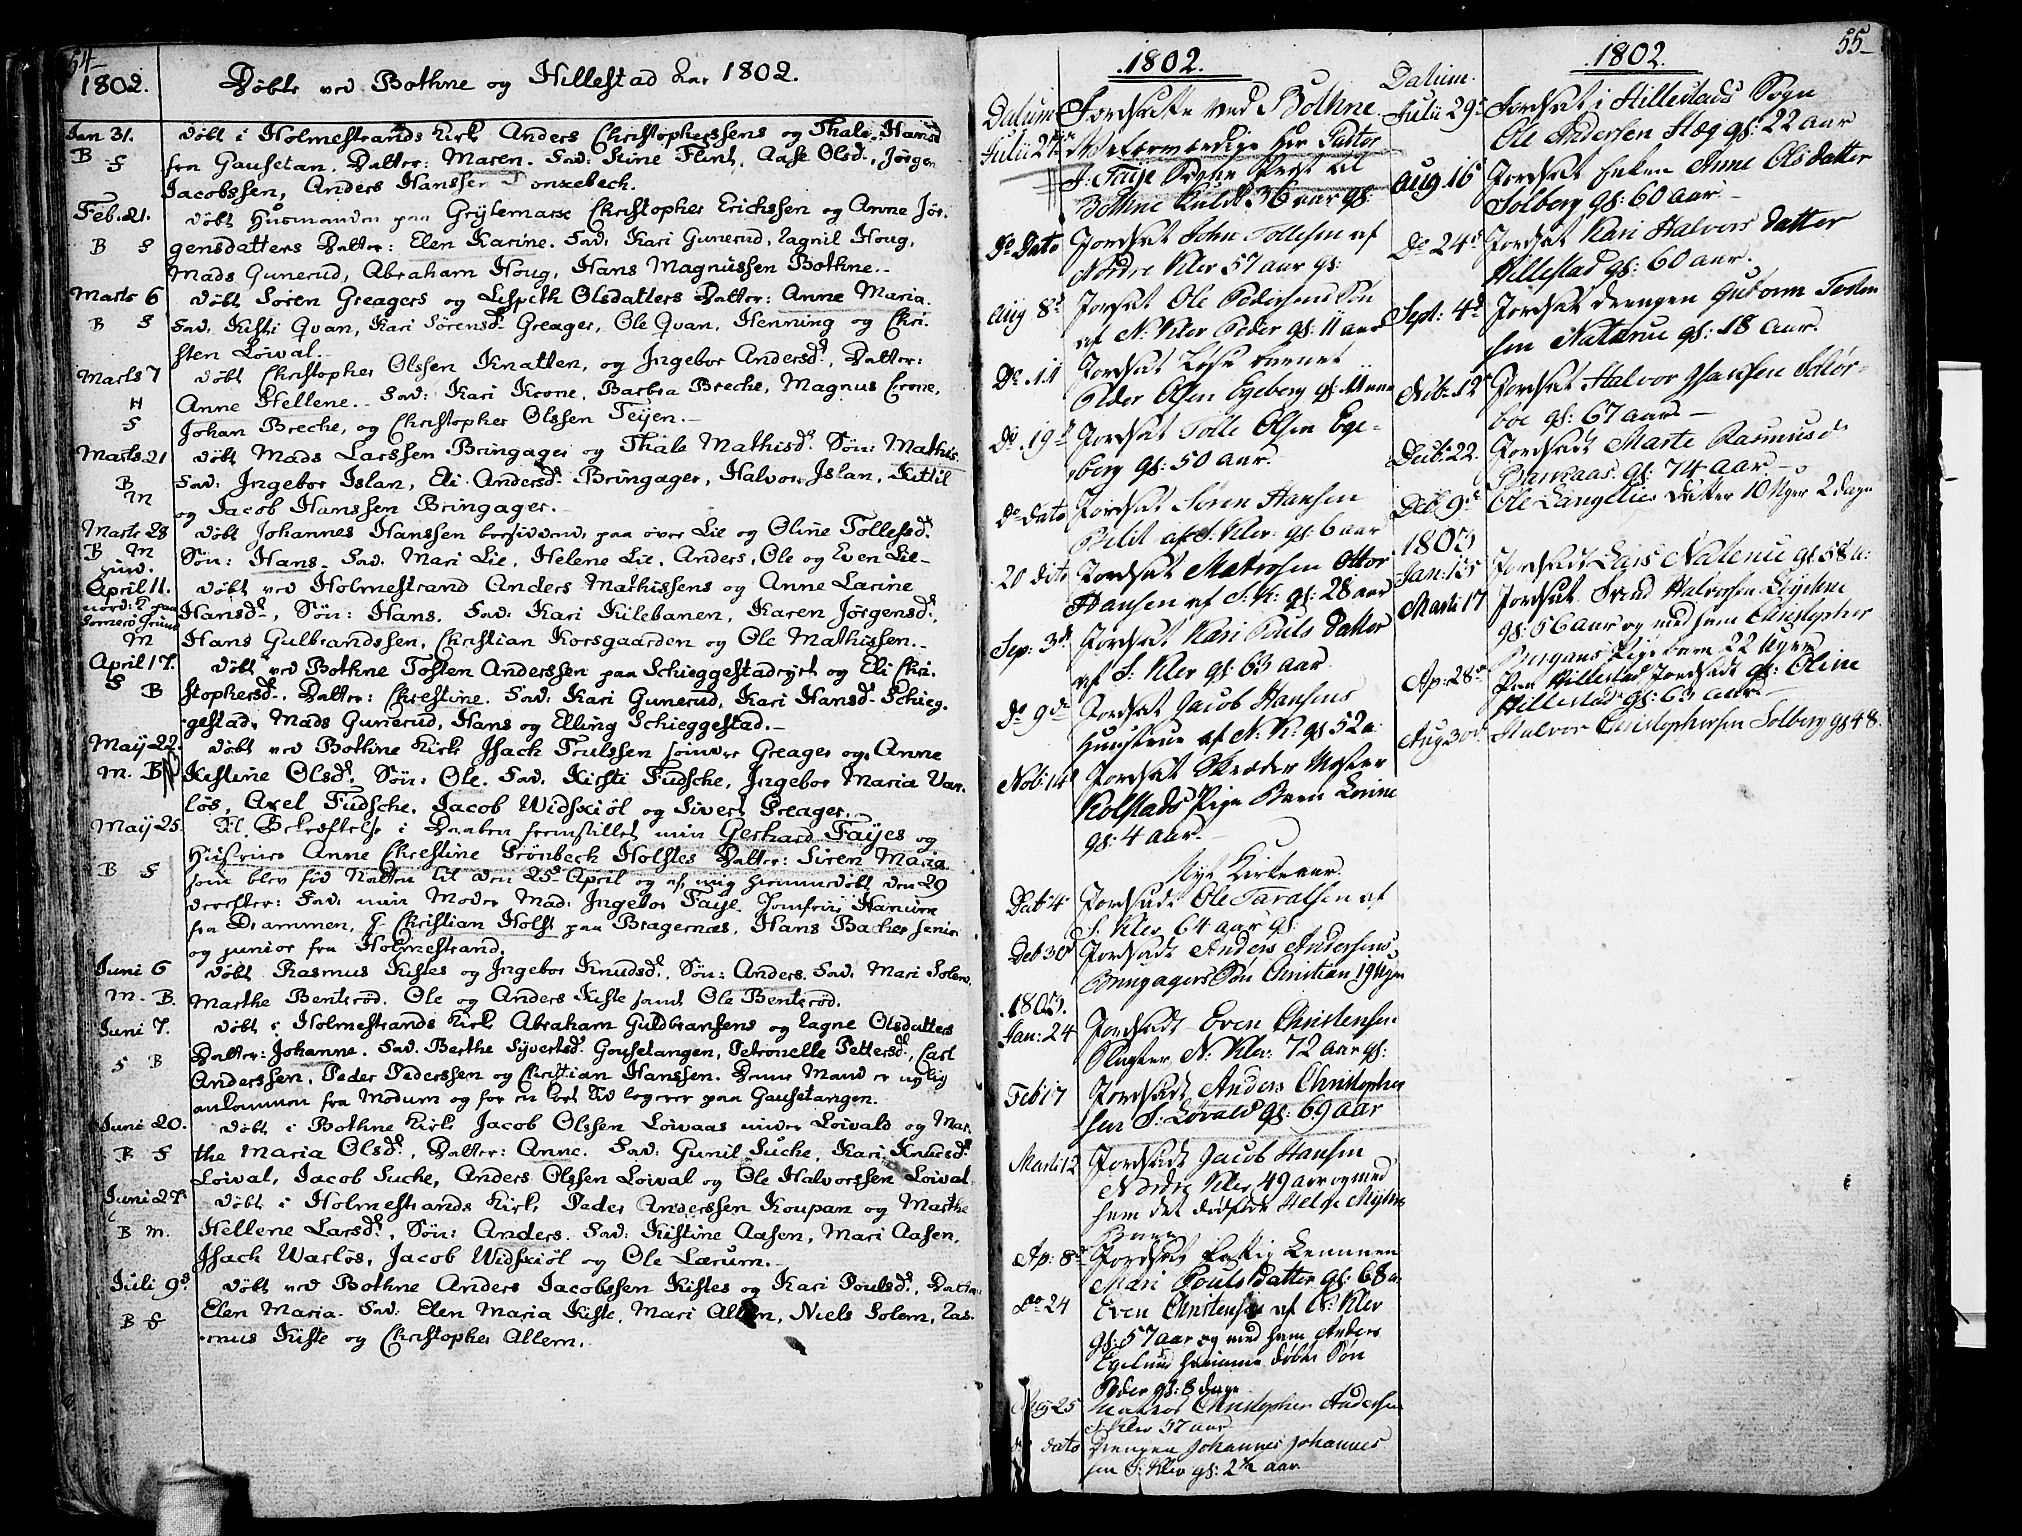 54
1802. Døbte ved Bothne og Hillestad Aar 1802.
Jan 31. døbt i Holmestrands Kirke Anders Christopherssens og Thale Hansd
B S fra Gausetan, Datter: Maren. Fad: Kine Flint, Aase Olsd., Jørgen
Jacobssen, Anders Hanssen
Feb. 21. døbt Husmanden paa Grytemarx Christopher Erichssen og Anne Jør-
B S gensdatters Datter: Elen Karine. Fad: Kari Gunerud, Ragnil Houg,
Mads Gunerud, Abraham Houg, Hans Magnussen Bothne.-
Marts 6 døbt Søren Greagers og Lispeth Olsdatters Datter: Anne Maria.
B S Fad: Kisti Qvan, Kari Sørensd. Greager, Ole Qvan, Henning og Chri-
sten Loival.-
Marts 7 døbt Christopher Olssen Knatten, og Ingebor Andersd., Datter:
H Anne Hellene.- Fad: Kari Krone, Barbra Breche, Magnus Crone,
S Johan Breche, og Christopher Olssen Teijen.-
Marts 21 døbt Mads Larssen Bringager og Thale Mathisd. Søn: Mathis.
B Fad: Ingebor Islan, Eli Andersd. Bringager, Halvor Islan, Kittil
M og Jacob Hanssen Bringager.-
Marts 28 døbt Johannes Hanssen paa øvre Lie og Oline Tollefsd.
B M Søn: Hans. Fad: Mari Lie, Helene Lie, Anders, Ole og Even Lie-
April 11. døbt ved Holmestrand Anders Mathissens og Anne Larine
Hansd., Søn: Hans. Fad: Kari Kilebanen, Karen Jørgensd.,
M Hans Gulbrandssen, Christian Korsgaarden og Ole Mathissen.-
April 17. døbt ved Bothne Tosten Anderssen paa Schieggestadryt og Eli Chri-
S B stophersd., Datter: Chrestine. Fad: Kari Gunerud, Kari Hansd. Schieg-
gestad, Mads Gunerud, Hans og Elling Schieggestad.-
May 22. døbt ved Bothne Kirke Isach Trulssen Greager og Anne
M. B Kistine Olsd., Søn: Ole. Fad: Kirsti Fudsche, Ingebor Maria Var-
løs, Axel Fudsche, Jacob Widsxiøl og Sivert Greager.-
May 25. Til Bekræftelse i Daaben fremstillet min Gerhard Fayes og
Hustrues Anne Chrestine Grönbech Holstes Datter: Siren Maria
B S som blev fød Natten til den 25d April og af mig hiemmedøbt den 29
derefter: Fad: min Moder Mad: Ingebor Faye. Jomfrue Hanine
fra Drammen, Hr Christian Holst paa Bragernæs, Hans Bacher senior
og junior fra Holmestrand.
Juni 6 døbt Rasmus Kistes og Ingebor Knudsd., Søn: Anders. Fad: Mari Solem,
M. B. Marthe Bentsrød, Ole og Anders Kiste samt Ole Bentsrød.
Juni 7. døbt i Holmestrands Kirke Abraham Guldbransens og Ragne Olsdatters
S B Datter: Johanne. Fad: Berthe Syvertsd. Gousetangen, Petronelle Pettersd., Carl
Anderssen, Peder Pederssen og Christian Hanssen. Denne Mand er nylig
ankommen fra Modum og for en kort Tid logerer paa Gausetangen.
Juni 20. døbt i Bothne Kirke Jacob Olssen Loivaas under Loivald og Mar-
B S the Maria Olsd., Datter: Anne. Fad: Gunil Suche, Kari Knudsd.
Loival, Jacob Suche, Anders Olssen Loival og Ole Halvorssen Loival
Juni 27. døbt i Holmestrands Kirke Peder Anderssen Koupan og Marthe
B M. Hellene Larsd., Søn: Anders. Fad: Kistine Aasen, Mari Aasen,
Isach Warløs, Jacob Widsxiøl og Ole Lærum.-
Juli 9d døbt ved Bothne Anders Jacobssen Kistes og Kari Poulsd., Datter:
B S Elen Maria. Fad: Elen Maria Kiste, Mari Allem, Niels Solem, Ras-
mus Kiste og Christopher Allem.
.1802.
Datum Jordsatte ved Bothne
Julii 27 Velærværdige Her Pastor
G: Faye Sogne Præst til
Bothne kuld 36 aar gl:
Do Dato Jordsat John Tollefsen af
Nordre Klev 57 aar gl:
Aug 8d Jordsat Ole Pedersens Søn
af N. Klev Peder gl: 11 aar
Do 11 Jordsat Løse barnet
Peder Olsen Egeberg gl: 11
Do 19d Jordsat Tolle Olsen Ege-
berg gl: 50 aar.
Do dato Jordsat Søren Hansen
af S. Klev: gl: 6 aar
20 dito Jordsat Matrosen Ottor
Hansen af S. K: gl: 28 aar
Sep: 3d Jordsat Kari Pouls datter
af S: Klev gl: 63 aar
Do 9de Jordsat Jacob Hansens
Huustrue af N. K: gl 52 a:
Nob: 14 Jordsat Skræder Mester
Kolstads Pige Barn Lovine
gl: 4 aar.-
Nyt Kirkeaar.
Deb 4 Jordsadt Ole Taraldsen af
S. Klev 64 aar gl:
Deb 30d Jordsadt Anders Andersens
Bringagers Søn Christian 19 Uger
.1803.
Jan: 24 Jordsadt Even Christensen
N: Klev: 72 aar gl:
Feb 17 Jordsadt Anders Christopher
sen S: Løvald gl: 69 aar
Marti 12 Jordsadt Jacob Hansen
Nordre Klev 49 aar og med
ham det dødfødte Helge Myhres
Barn
Ap: 8d Jordsat fattig Lemmen
Mari Pouls datter gl: 68 a.
Do 24 Even Christensen af N: Klev
gl: 57 aar og med ham Anders
Egelund hiemme døbte Søn
Peder gl: 8 dage
May 25 Matros Christopher Andersen
S Klev 37 aar
do dato Drengen Johannes Johannes
sen S: Klev gl: 2½ aar
55
.1802.
Datum.
Julii 29d Jordsat i Hillestads Sogn
Ole Andersen Hæg gl: 22 aar
Aug 16 Jordsat Enken Anne Ols datter
Solberg gl: 60 aar.-
Do 24d Jordsat Kari Halvors datter
Hillestad gl: 60 aar.
Sept: 4d Jordsat drengen Gutorm Tosten
sen Natterue gl: 18 aar.
Nob: 12 Jordsat Halvor Hansen Schør-
boe gl: 67 aar.-
Deeb: 22 Jordsadt Marte Rasmusd:
gl: 74 aar.-
Deb 9d Ole Langelies datter 10 Uger 2 dage
1803
Jan: 15 Jordsadt Lars Naterue gl 58 a:
Marti 17 Jordsat Svend Halvorsen
gl: 56 aar og med ham Christopher
Pige barn 22 Uger
Ap: 28 Paa Hillestad Jordsadt gl: Oline
Hillestad gl: 63 aar.-
Aug 30d Halvor Christophersen Solberg gl 48